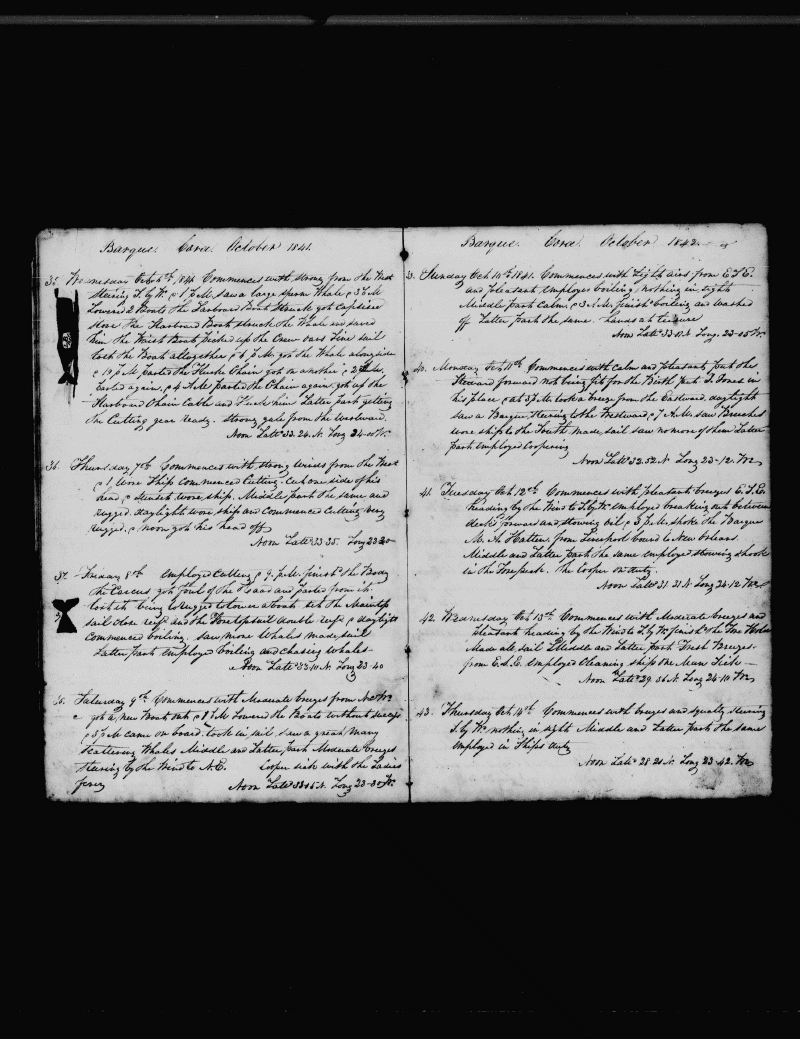 Barque. Cora. October 1841.
35. Wednesday Oct 6th 1841 Commences with strong from the West
stearing S. by W. @ 1 P.M. saw a large sperm Whale @ 3 P.M.
Lowered 2 Boats the Larboard Boat Struck got Capsised
stove the Starboard Boat struck the Whale and saved
him the Waist Boat picked up the Crew oars Line sail
lost the Boat altogether @ 6 P.M. got the Whale alongside
@ 10 P.M. parted the Fluke Chain got on another @ 2 A.M.
Parted again. @ 4 A.M. parted the Chain again. got up the
Starboard Chain Cable and Fluk him Latter part getting
the Cutting gear ready. Strong gale from the westward.
Noon Latd 33.24. N. Long 24-00 W.
36. Thursday 7th Commences with strong winds from the West
@ 1 Wore Ship Commenced Cutting. Cut one side of his
head @ sunset wore ship. Middle part the same and
rugged. daylight wore ship and Commenced Cutting very
rugged. @ noon got his head off
Noon Latd 33 35. Long 23 20
37. Friday 8th employed Cutting @ 9. P.M. finishd the Body
the Carcus got foul of the and parted from it.
lost it being to rugged to lower a boat. set the Maintop
sail close reefd and the Foretopsail double reefd @ daylight
Commenced boiling. Saw more Whales made sail
Latter part employed boiling and chasing Whales.
Noon Latd 33.10 N. Long 23 40
Saturday 9th Commences with Moderate breezes from
got a new Boat out. @ 1 P.M. Lowered the Boats without success
@ 5 P.M. came on board. took in sail. saw a great Many
scattering Whales Middle and Latter part Moderate breezes
stearing by the Wind to N.E. Cooper sick with the Ladies
fever
Noon Latd N. Long 23-30 W.
Barque. Cora. October 1842.
Sunday Oct 10th 1841. Commences with Light airs from E.S.E.
and pleasant employed boiling, nothing in sight
Middle part Calm. @ 3 A.M. finishd boiling and washed
off Latter part the same. hands at leisure
Noon Latd 33.10 N. Long. 23-05 W.
40. Monday Oct 11th Commences with Calm and pleasant put the
Steward forward not being fit for the Birth put in
his place @ at 3 P.M. took a breeze from the Eastward. daylight
saw a Barque stearing to the Westward. @ 7 A.M. saw Breeches
wore ship to the South. made sail saw no more of them Latter
part employed Coopering
Noon Latd 32.52 N Long 23-12. W
41. Tuesday Oct 12th Commences with pleasant breezes E.S.E.
heading by the Wind to S. by W. employed breaking out between
decks forward and stowing oil @ 3 P.M. spoke the Barque
from Liverpool bound to New Orleans.
Middle and Latter part the same employed stowing shook
in the Forepeak. the Cooper on duty.
Noon Latd 31.21 N. Long 24-12 W
42. Wednesday Oct 13th Commences with Moderate breezes and
pleasant heading by the Wind to S. by W. finishd the Fore Hold
Made all sail Middle and Latter part Fresh Breezes
from E.S.E. employed Cleaning ship one Man Sick
Noon Latd 29.36 N. Long 24-10 W
43. Thursday Oct 14th Commences with breezes and squally stearing
S. by W. nothing in sight Middle and Latter part the same
employed in Ships duty
Noon Latd 28.21 N. Long 23-42. W